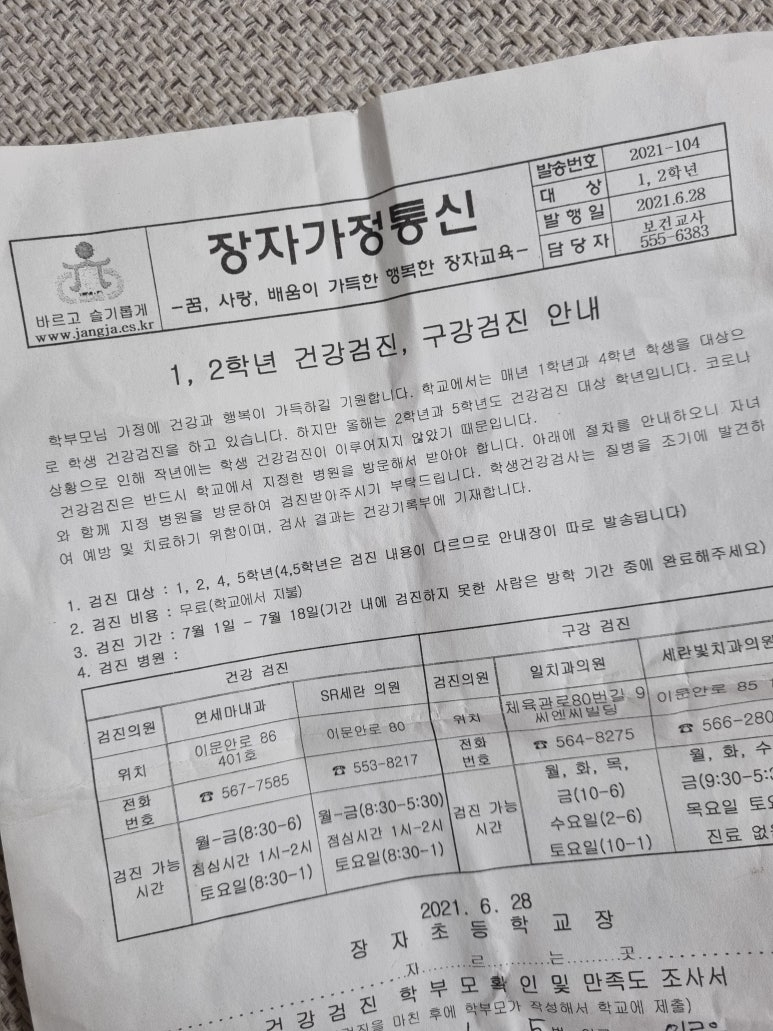 바르고 슬기롭게
www.jangja.es.kr
장자가정통신
-꿈, 사랑, 배움이 가득한 행복한 장자교육-
발송번호 2021-104
대 상 1, 2학년
발 행 일 2021.6.28
담 당 자 보건교사
555-6383
1, 2학년 건강검진, 구강검진 안내
학부모님 가정에 건강과 행복이 가득하길 기원합니다. 학교에서는 매년 1학년과 4학년 학생을 대상으
로 학생 건강검진을 하고 있습니다. 하지만 올해는 2학년과 5학년도 건강검진 대상 학년입니다. 코로나
상황으로 인해 작년에는 학생 건강검진이 이루어지지 않았기 때문입니다.
건강검진은 반드시 학교에서 지정한 병원을 방문해서 받아야 합니다. 아래에 절차를 안내하오니 자녀
와 함께 지정 병원을 방문하여 검진받아주시기 부탁드립니다. 학생건강검사는 질병을 조기에 발견하
여 예방 및 치료하기 위함이며, 검사 결과는 건강기록부에 기재합니다.
1. 검진 대상 : 1, 2, 4, 5학년(4,5학년은 검진 내용이 다르므로 안내장이 따로 발송됩니다)
2. 검진 비용 : 무료(학교에서 지불)
3. 검진 기간 : 7월 1일 - 7월 18일(기간 내에 검진하지 못한 사람은 방학 기간 중에 완료해주세요)
4. 검진 병원 :
건강 검진 구강 검진
검진의원 연세마내과 SR세란 의원 검진의원 일치과의원 세란빛치과의원
위치 이문안로 86 401호 이문안로 80 위치 체육관로80번길 9 씨엔씨빌딩 이문안로 85
전화 번호 ☎ 567-7585 ☎ 553-8217 전화 번호 ☎ 564-8275 ☎ 566-280
검진 가능 시간 월-금(8:30-6) 월-금(8:30-5:30) 검진 가능 시간 월, 화, 목, 월, 화, 수
점심시간 1시-2시 점심시간 1시-2시 금(10-6) 금(9:30-5:3
토요일(8:30-1) 토요일(8:30-1) 수요일(2-6) 목요일 토요
토요일(10-1) 진료 없
2021. 6. 28
장 자 초 등 학 교 장
자 르 는 곳
건강검진 학부모확인 및 만족도 조사서
검진을 마친 후에 학부모가 작성해서 학교에 제출)